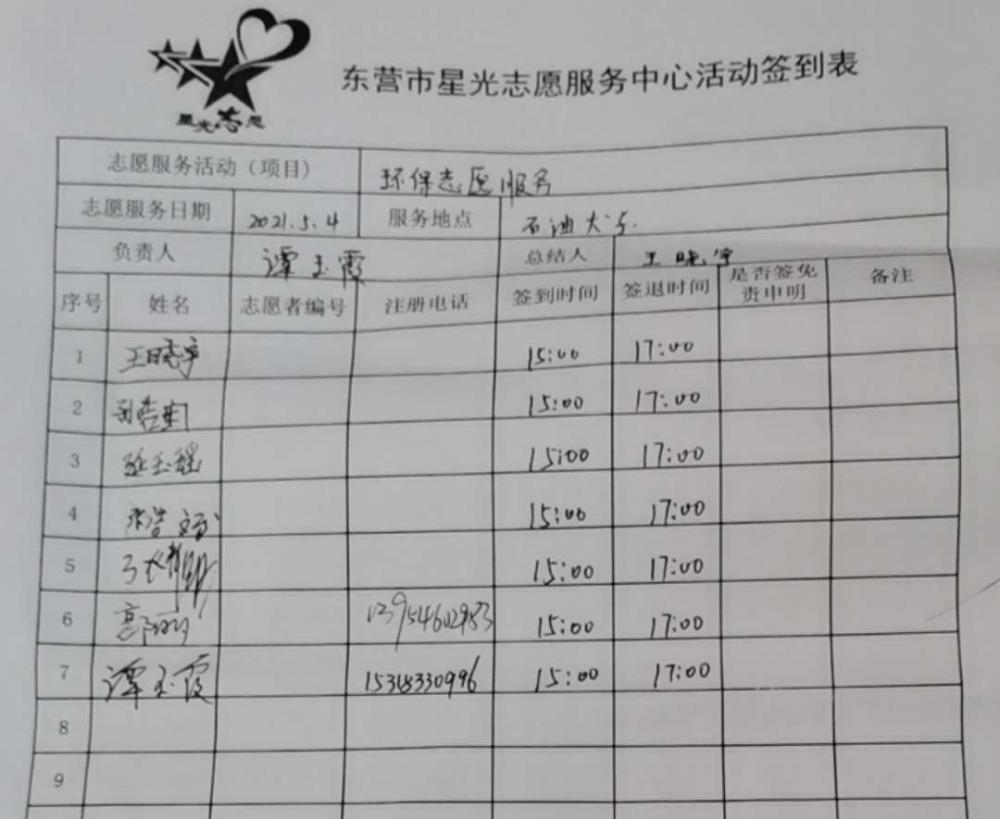 星光志愿
东营市星光志愿服务中心活动签到表
志愿服务活动（项目） 环保志愿服务
志愿服务日期 2021.5.4 服务地点 石油大学
负责人 谭玉霞 总结人 王晓宇
序号 姓名 志愿者编号 注册电话 签到时间 签退时间 是否签免责申明 备注
1 王晓宇 15:00 17:00
2 15:00 17:00
3 玉瑶 15:00 17:00
4 浩 15:00 17:00
5 15:00 17:00
6 郭 13954602983 15:00 17:00
7 谭玉霞 15:00 17:00
8
9